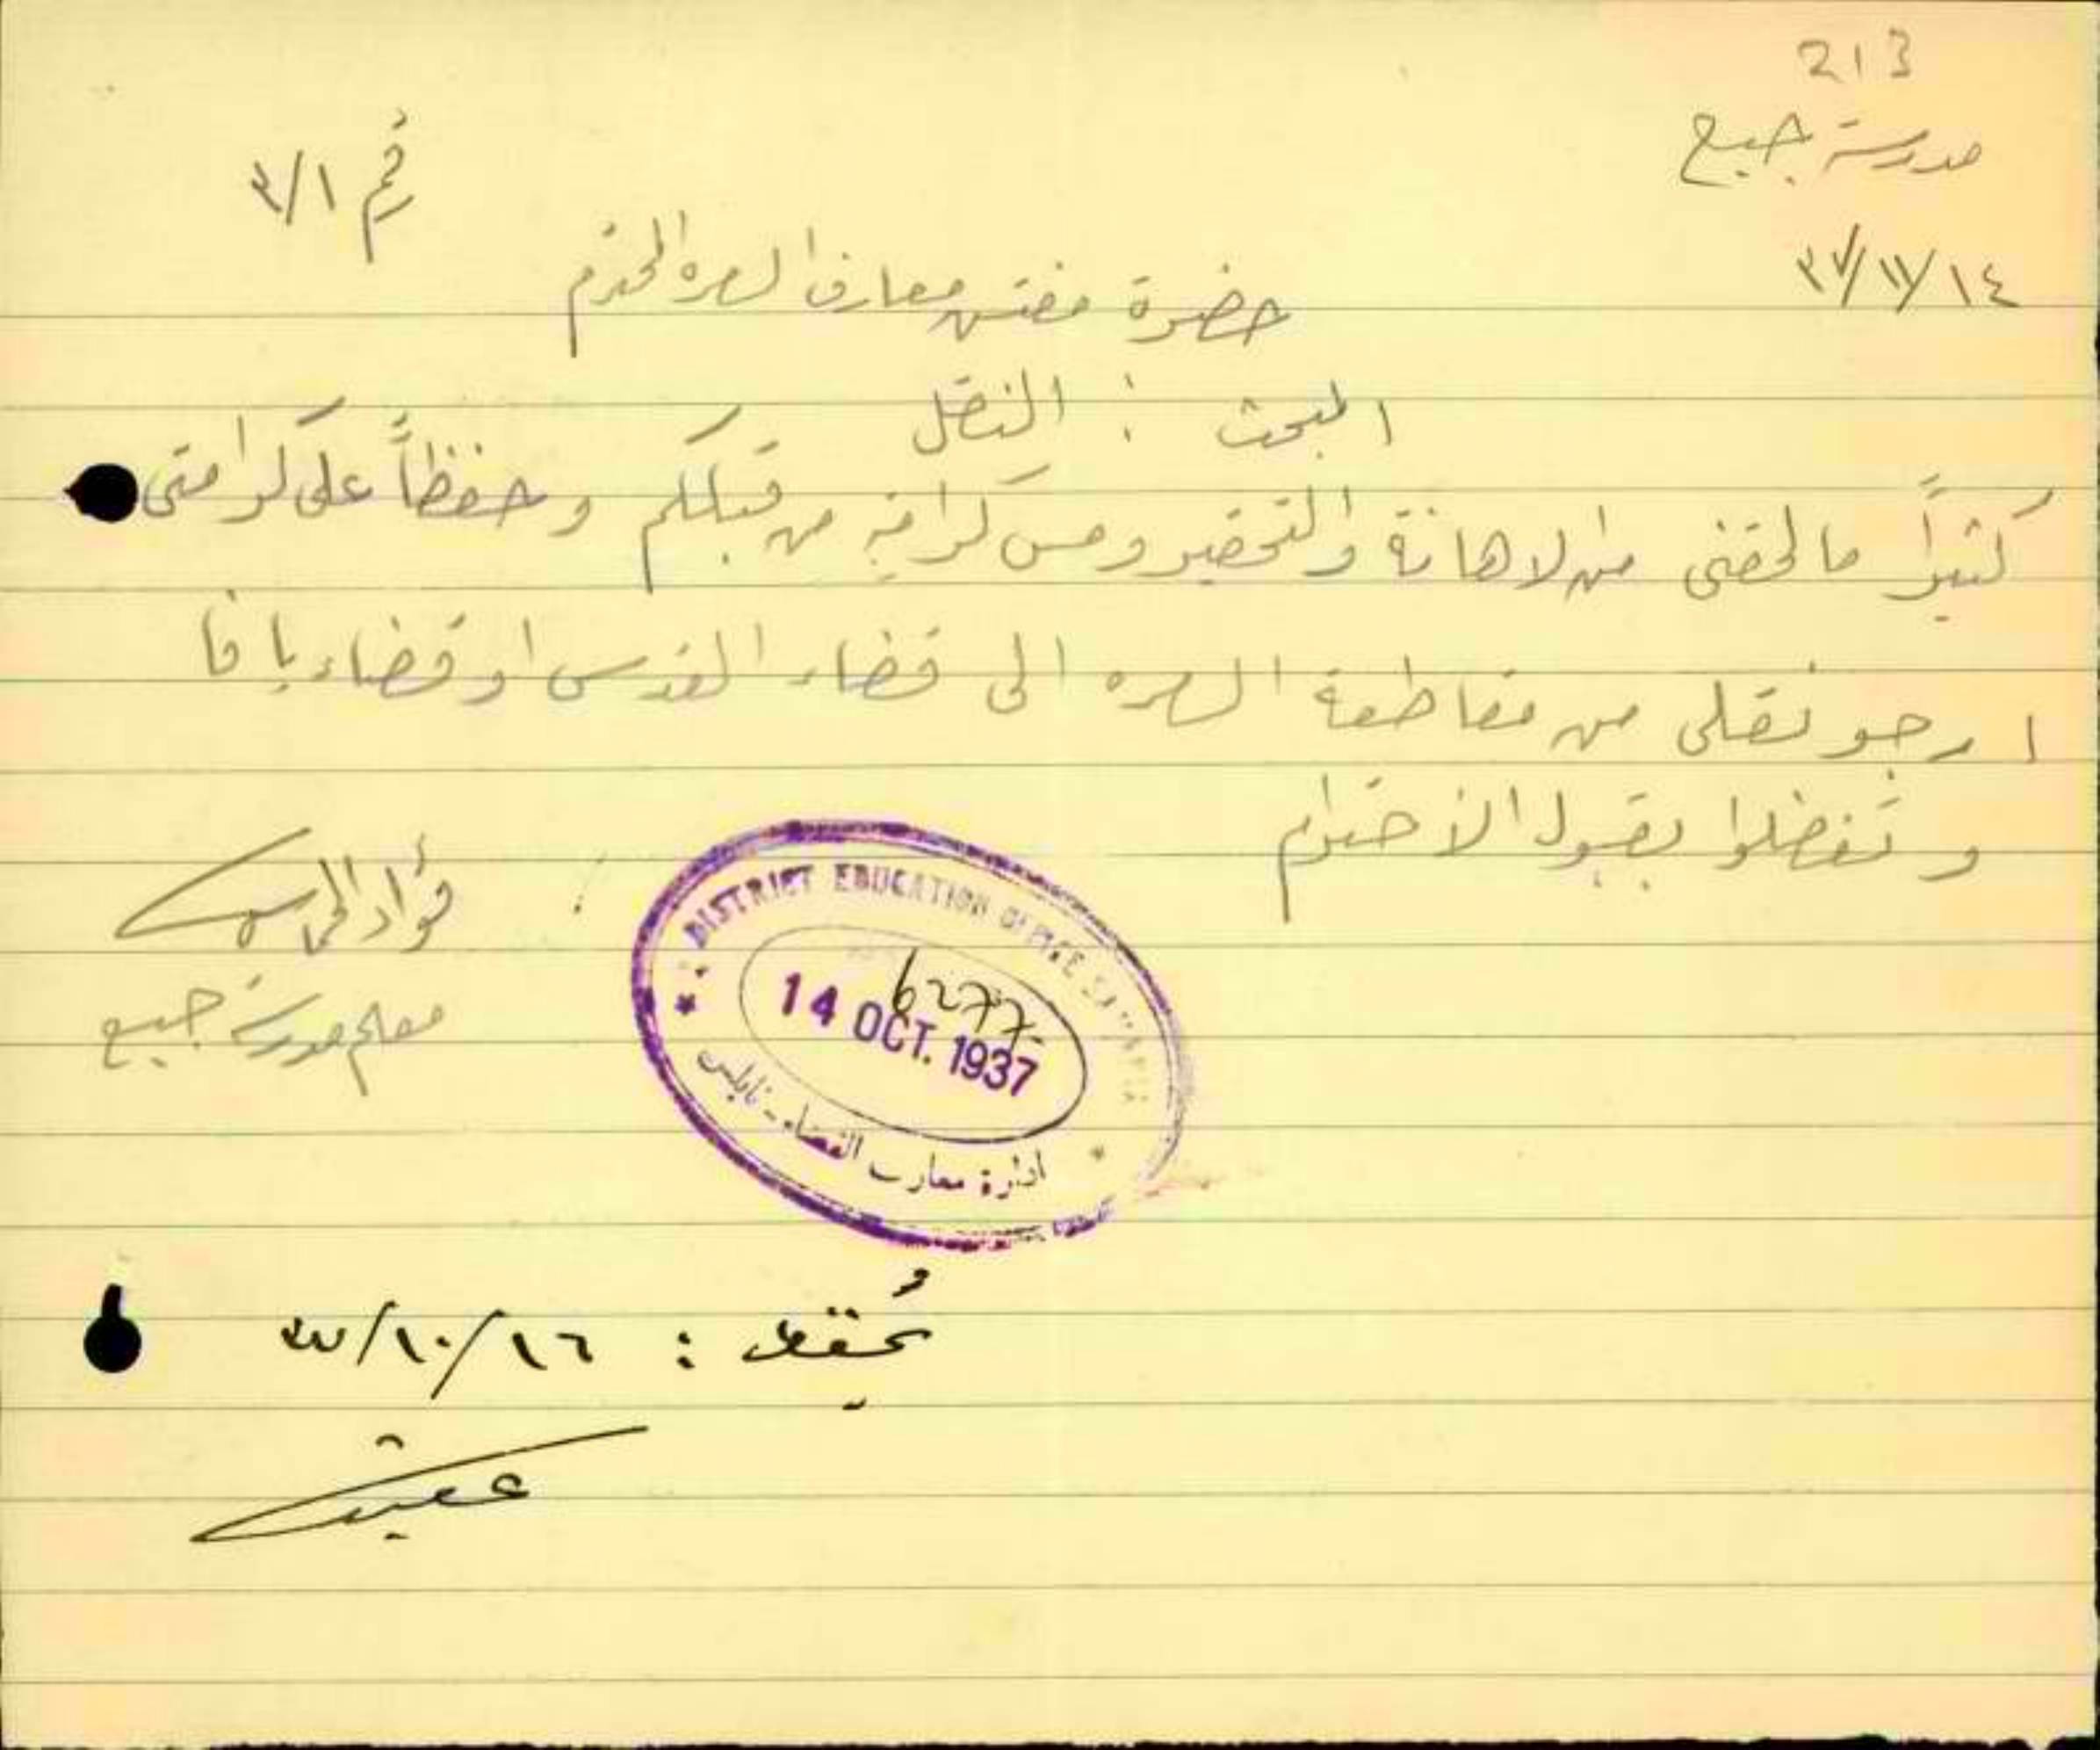 213
مدرسة جبع
رقم ٣/١
٣٧/١١/١٤
حضرة مفتش معارف السمره المحترم
المبحث : النقل
كثيراً ما لحقني من الاهانة والتحقير ومس كرامة من قبلكم وحفظاً على كرامتي
ارجو نقلي من مقاطعة السمره الى قضاء القدس او قضاء يافا
وتفضلوا بقبول الاحترام
فؤاد
معلم مدرسة جبع
DISTRICT EDUCATION OFFICE SAMARIA
6277
14 OCT. 1937
ادارة معارف القضاء - نابلس
يُحفظ : ٣٧/١٠/١٦